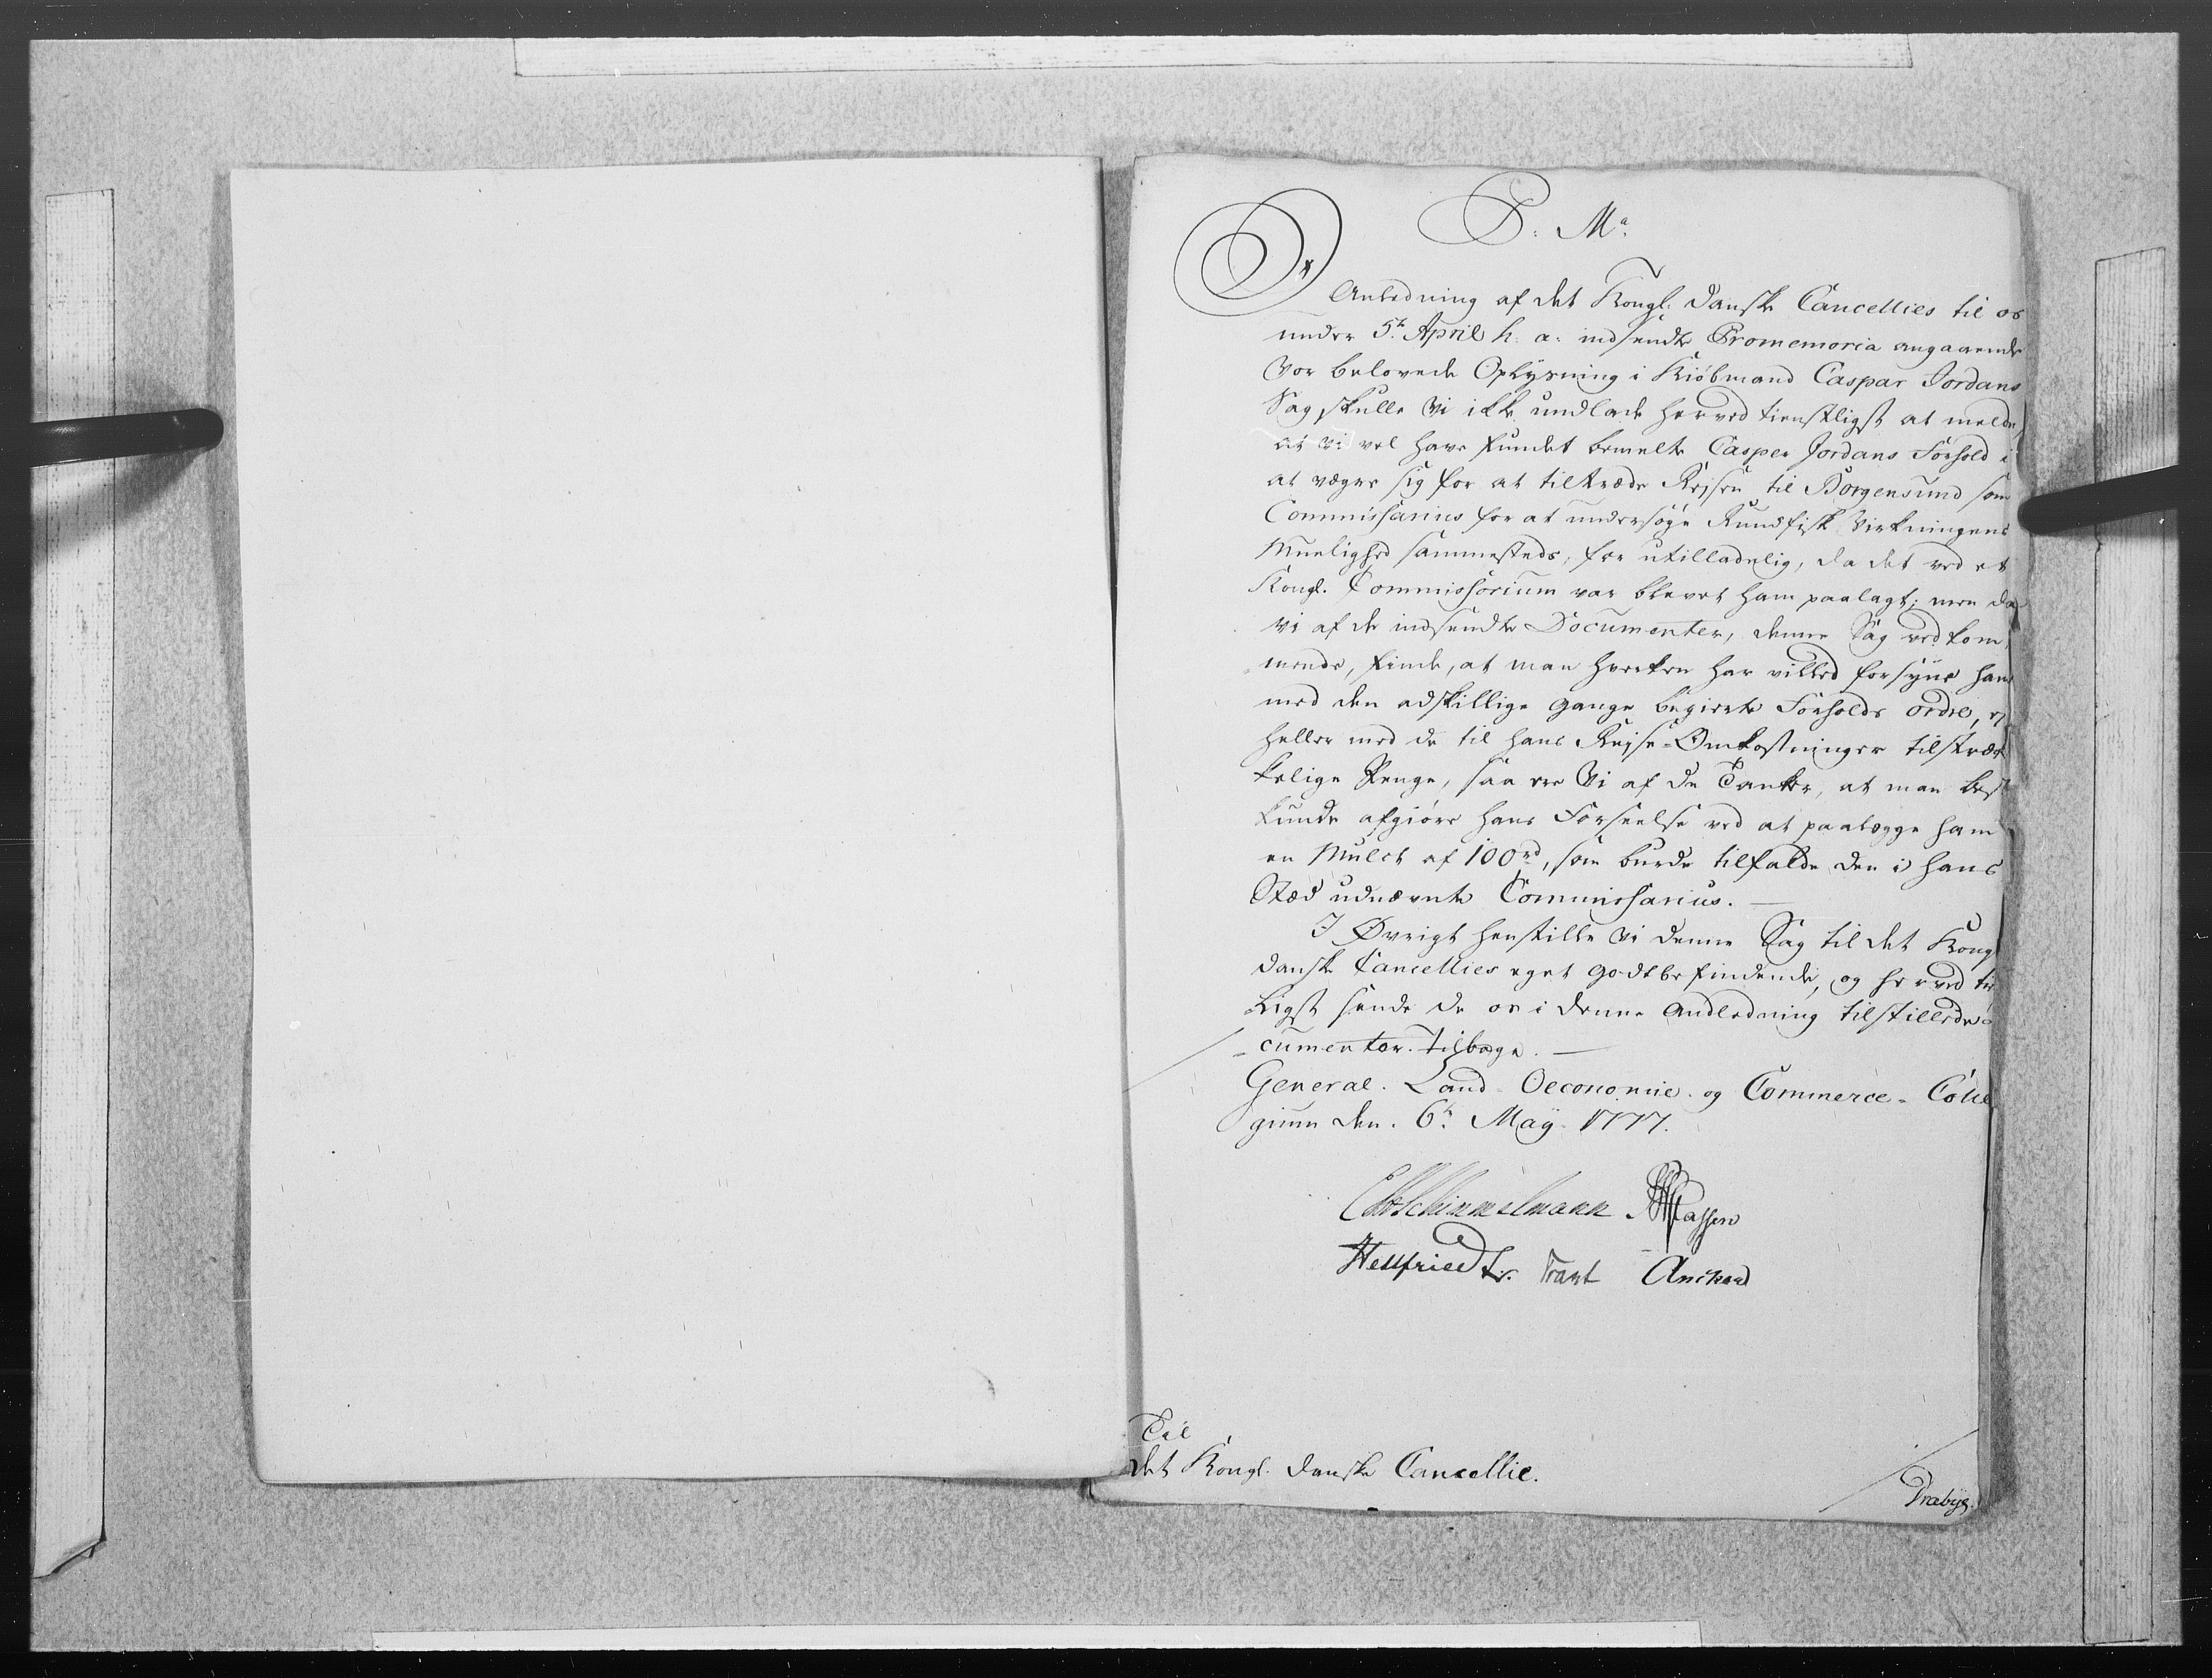 P: Mᵃ:
I
Anledning af det Kongl: Danske Cancellies til os
under 5ᵗᵉ April h: a: indsendte Promemoria angaaende
Vor belovede Oplysning i Kiøbmand Caspar Jordans
Sag, skulle Vi ikke undlade herved tienstligst at melde,
at Vi vel have fundet bemelte Casper Jordans Forhold i
at vægre sig for at tiltræde Rejsen til Borgensund som
Commissarius for at undersøge Rundfisk Virkningens
Muelighed sammesteds, for utilladelig, da det ved et
Kongl. Commissorium var blevet ham paalagt; men da
Vi af de indsendte Documenter, denne Sag vedkom-
mende, finde, at man hverken har villed forsyne ham
med den adskillige Gange begierte Forholds Ordre, ej
heller med de til hans Rejse-Omkostninger tilstræk
kelige Penge, saa ere Vi af de Tanker, at man best
kunde afgiøre hans Forseelse ved at paalægge ham
en Mulct af 100 rd, som burde tilfalde den i hans
Sted udnævnte Commissarius.
I Øvrigt henstille Vi denne Sag til det Kongl
Danske Cancellies eget Godtbefindende, og herved ti
ligst sende de os i denne Andledning tilstillede
cumenter tilbage.
General-Land-Oeconomie- og Commerce-Colle
gium den 6ᵗᵉ May 1777.
Schimmelmann
Hellfriedt. Trant Anchard
Til
det Kongl. Danske Cancellie.
Dræbÿe.